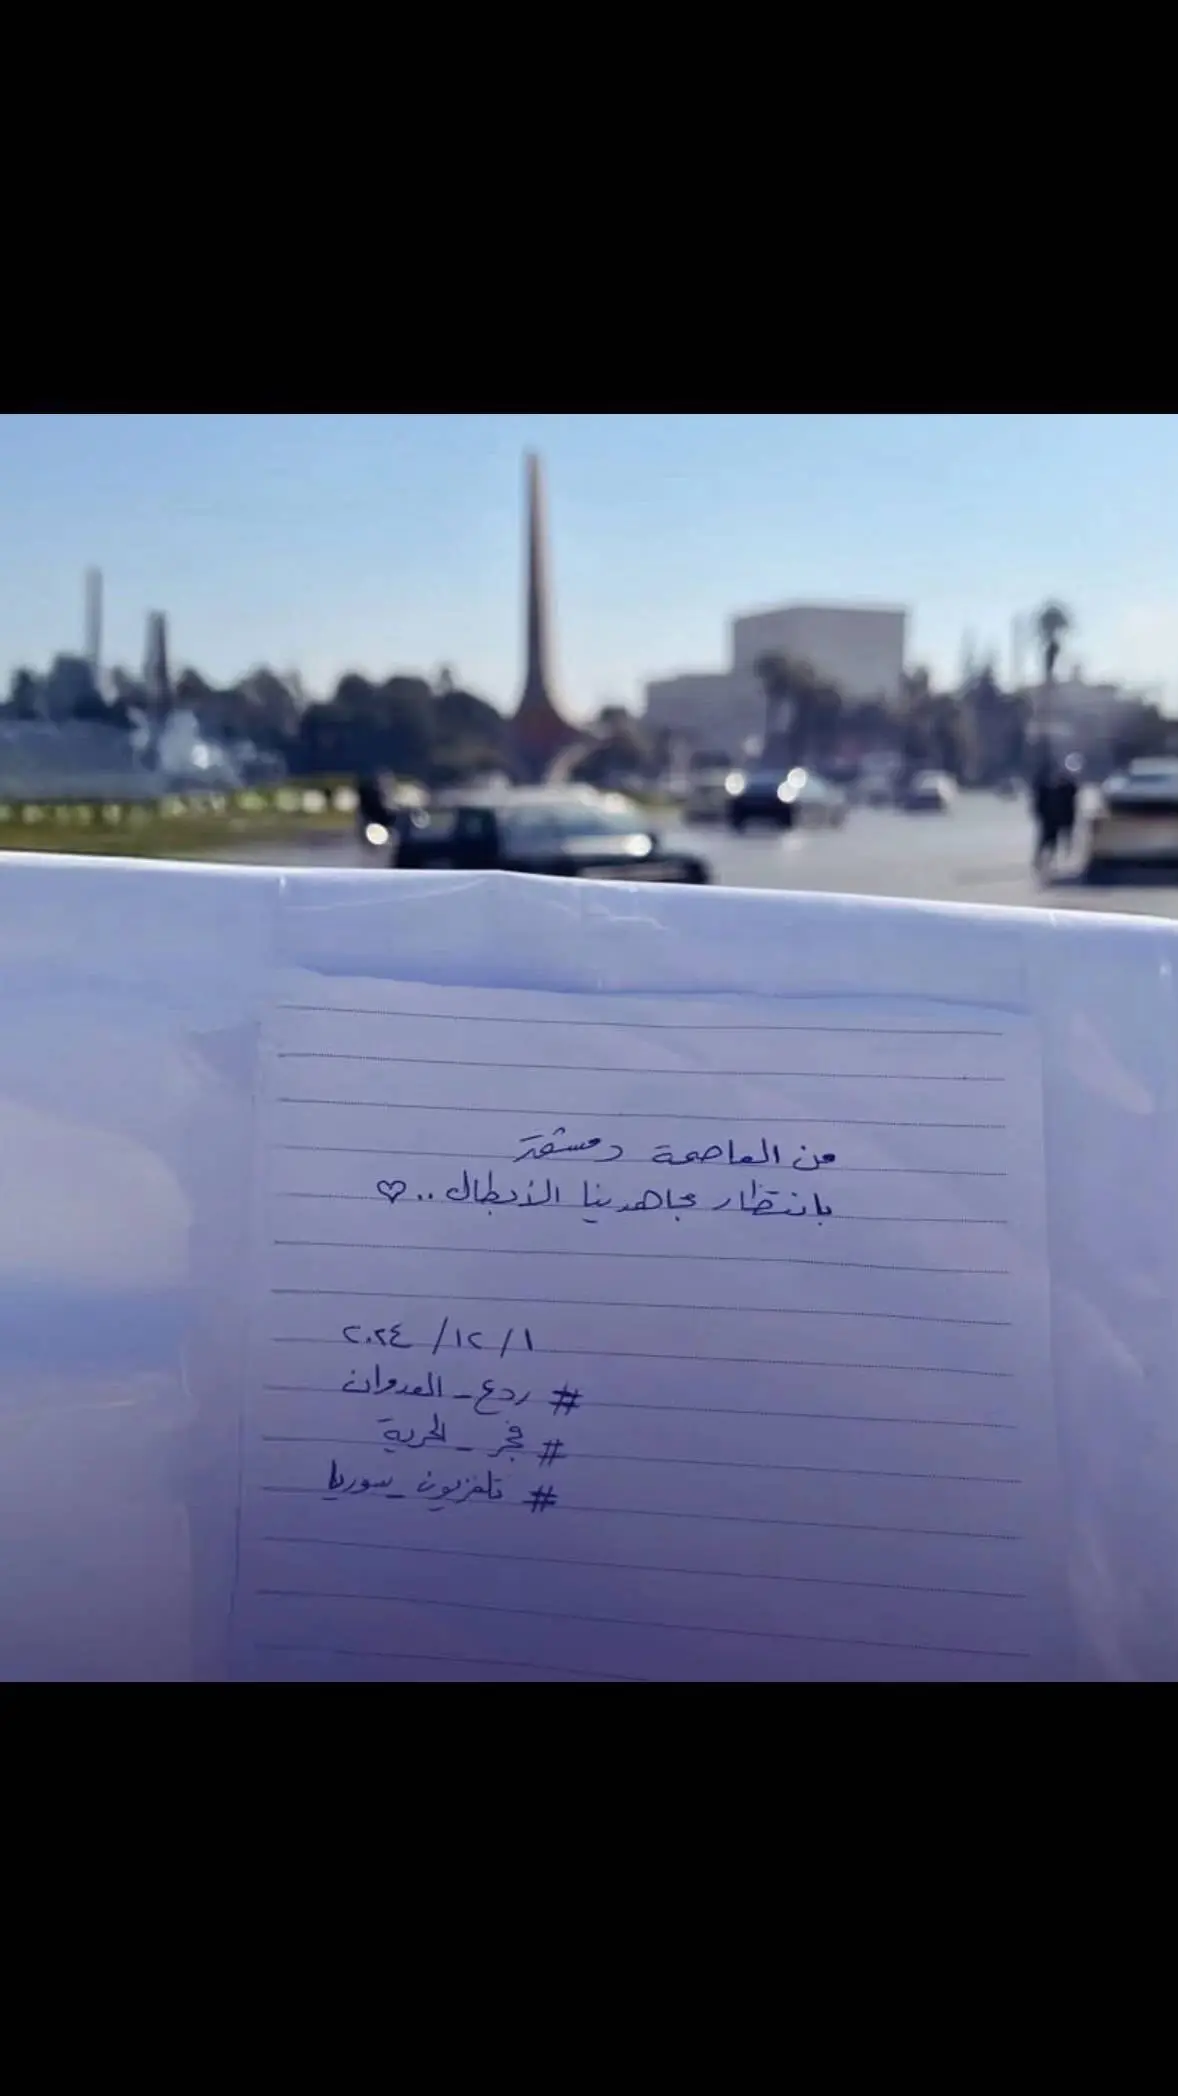 من العاصمة دمشق
بانتظار مجاهدينا الأبطال .. ♡
٢٠٢٤ / ١٢ / ١
# ردع_العدوان
# فجر_الحرية
# تلفزيون_سوريا